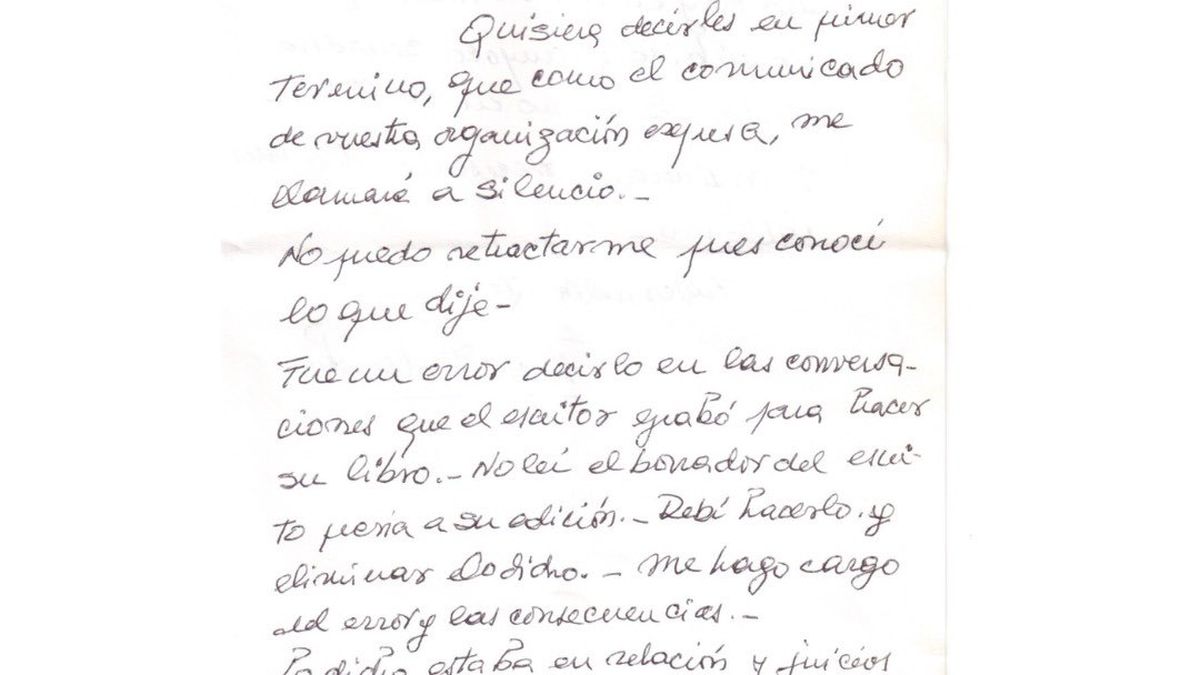 Quisiera decirles en primer
termino, que como el comunicado
de vuestra organización expresa, me
llamaré a silencio.-
No puedo retractarme pues conocí
lo que dije-
Fue un error decirlo en las conversa-
ciones que el escritor grabó para hacer
su libro.- No leí el borrador del escri-
to previa a su edición.- Debí hacerlo y
eliminar lo dicho.- me hago cargo
del error y las consecuencias.-
Lo dicho estaba en relación y juicios